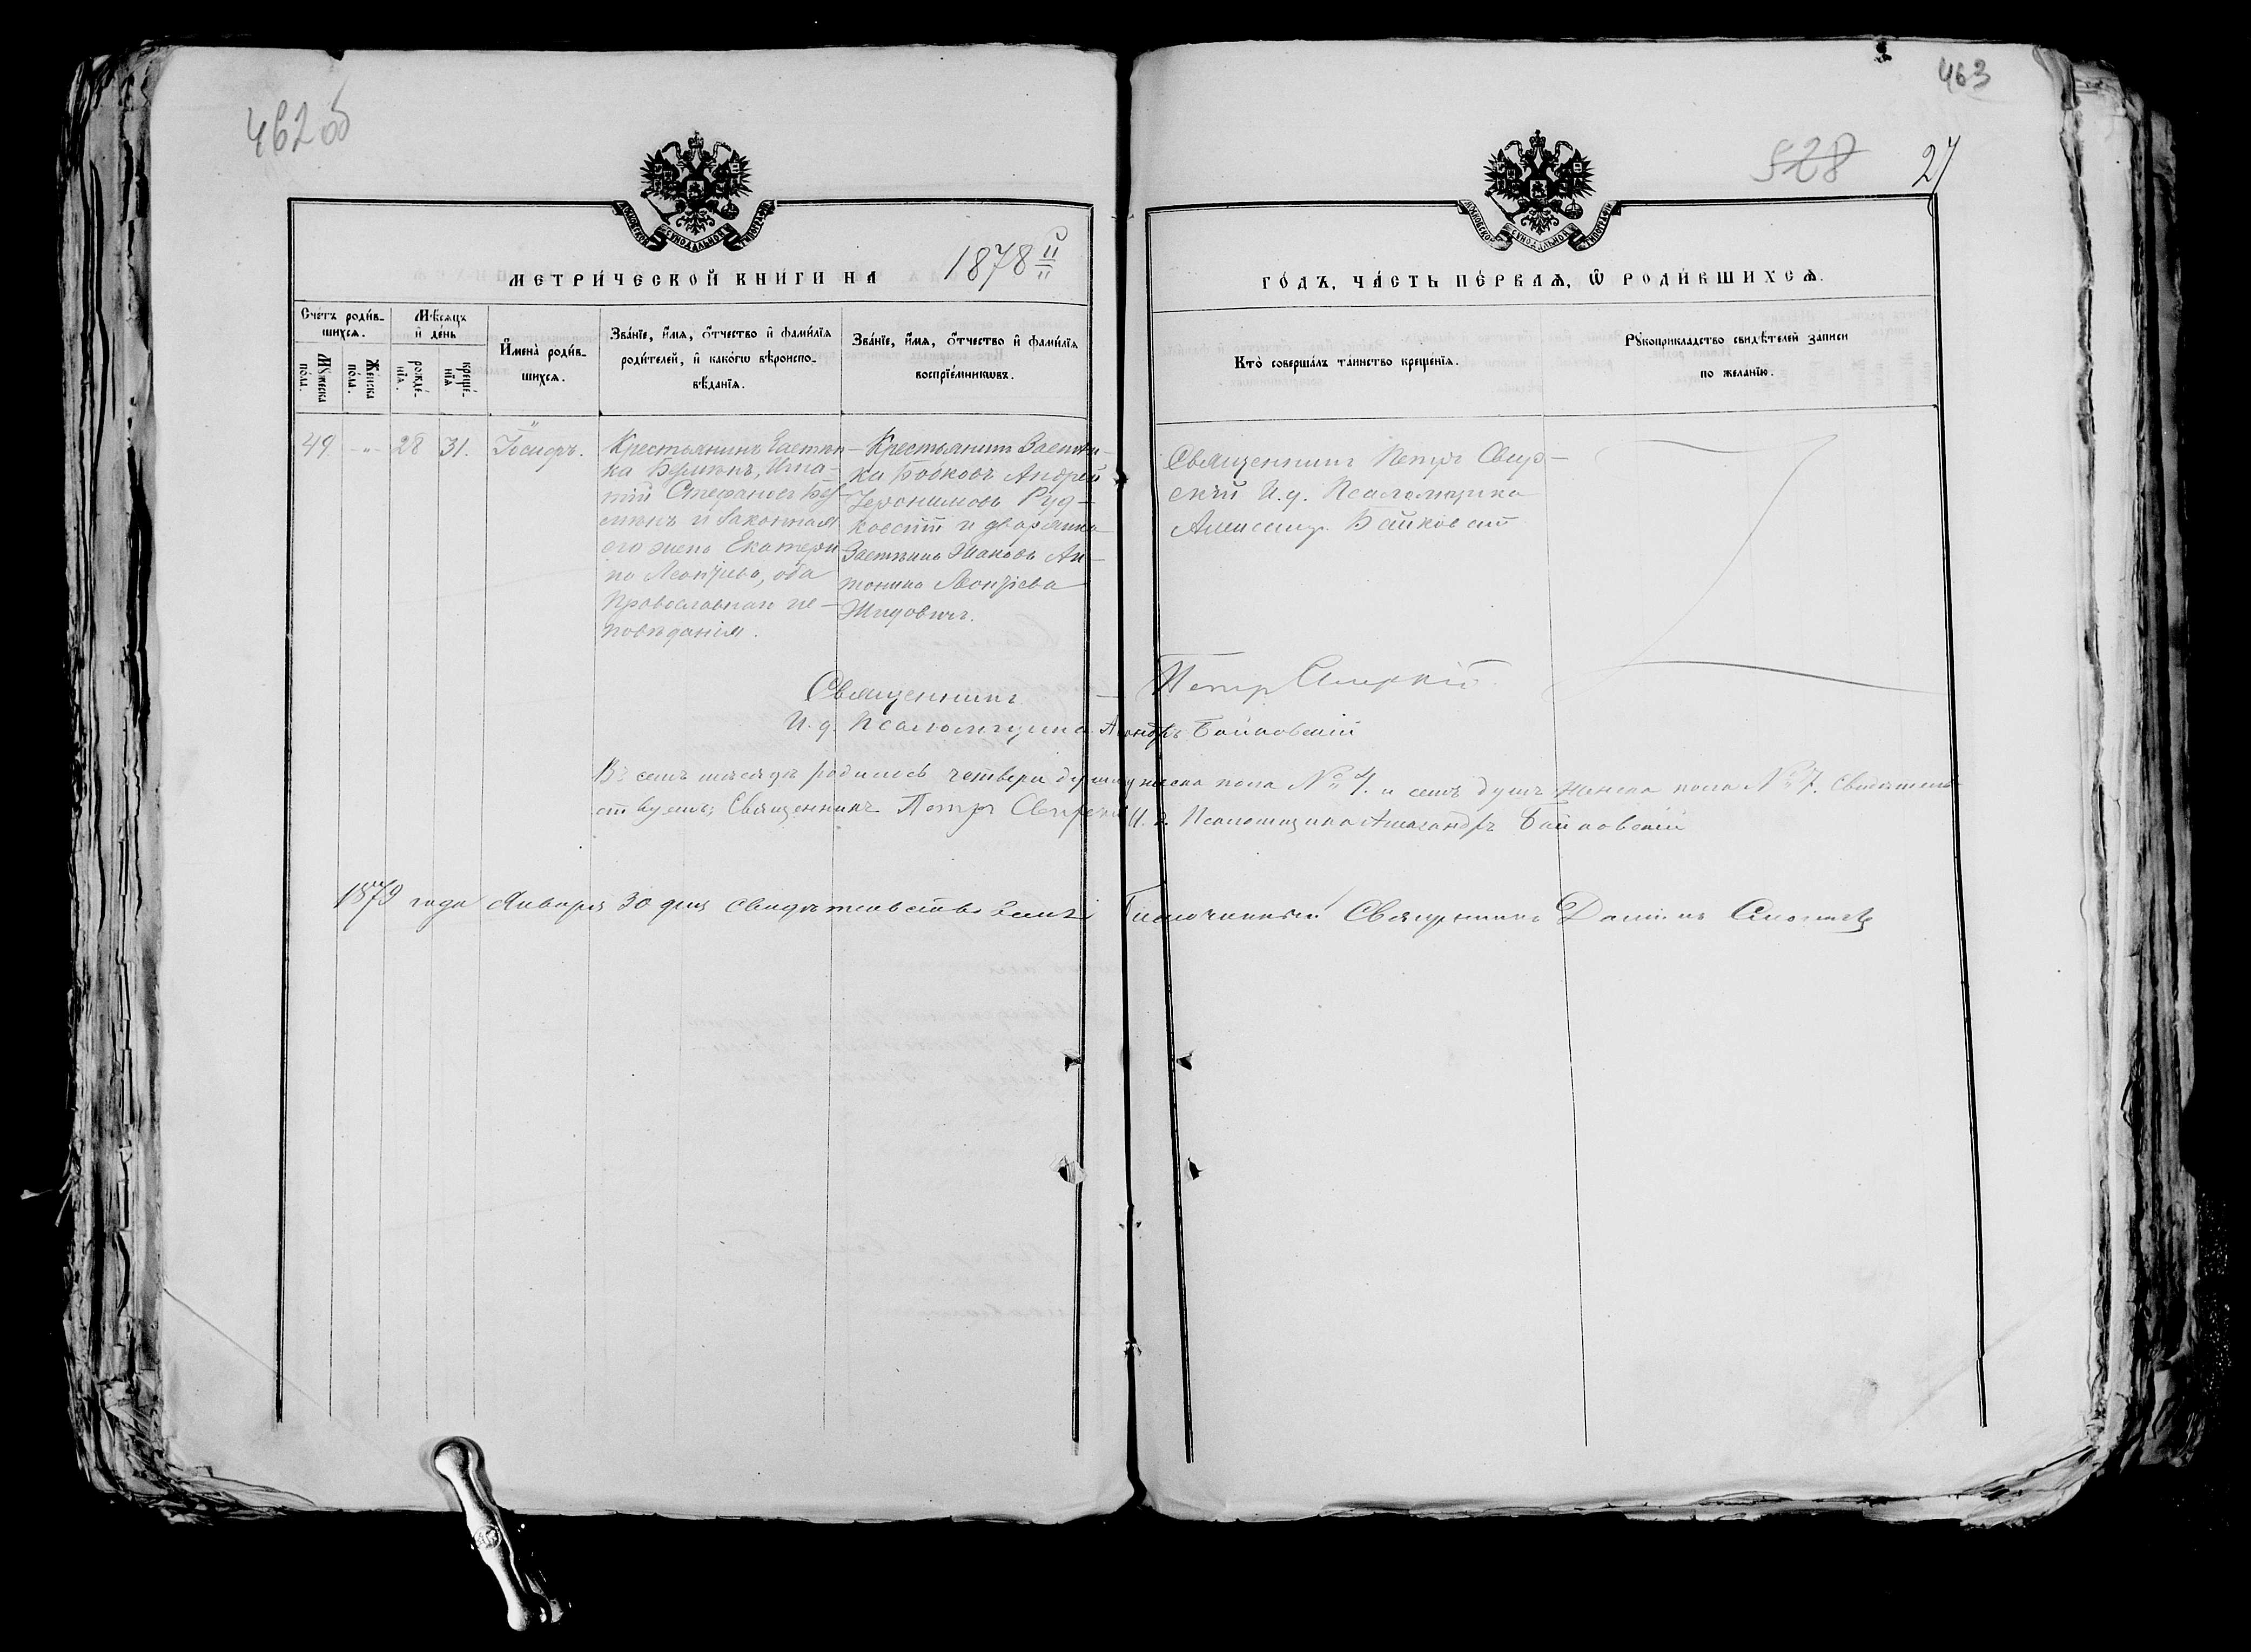 462 об
463
528
27
МОСКОВСКОЙ СѴНОДАЛЬНОЙ ТИПОГРАФІИ
МОСКОВСКОЙ СѴНОДАЛЬНОЙ ТИПОГРАФІИ
МЕТРИ́ЧЕСКОЙ КНИ́ГИ НА 1878й
ГО́ДЪ, ЧА́СТЬ ПЕ́РВАѦ, Ѡ҆ РОДИ́ВШИХСѦ.
Сче́тъ роди́в-
шихсѧ.
Мѹ́жеска
по́ла.
Же́нска
по́ла.
Мѣ́сяцъ
и҆ де́нь
рожде́-
нїѧ.
креще́-
нїѧ
И҆мена̀ роди́в-
шихсѧ.
Зва́нїе, и҆́мѧ, ѻ҆́тчество и҆ фами́лїѧ
роди́телей, и҆ како́гѡ вѣроиспо-
вѣ́данїѧ.
Зва́нїе, и҆́мѧ, ѻ҆́тчество и҆ фами́лїѧ
воспрїе́мникѡвъ.
Кто̀ соверша́лъ та́инство креще́нїѧ.
Рѹкоприкладство свидѣ́телей записи
по жела́нїю.
49 - " - 28 31. Іосифъ.
Крестьянинъ Застѣн-
ка
Стефановъ
и законная
его жена Екатери-
на Леонтіева, оба
Православнаго ис-
повѣданія.
Крестьянинъ Застѣн-
ка Бойковъ Андрей
Іеронимовъ Руд-
ковскій и дворянка
Застѣнка Ан-
тонина Леонтіева
Жидовичъ.
Священникъ Петръ Свир-
скій И. д. Псаломщика
Александръ Байковскій
Священникъ Петръ Свирскій
И. д. Псаломщика Александръ Байковскій
Въ семъ мѣсяцѣ родилось четверо душъ муж. пола № 4. и семь душъ женска пола № 7. Свидѣтель-
ствуемъ; Священникъ Петръ Свирскій И. д. Псаломщика Александръ Байковскій
1879 года Января 30 дня свидѣтельствовалъ Благочинный Священникъ